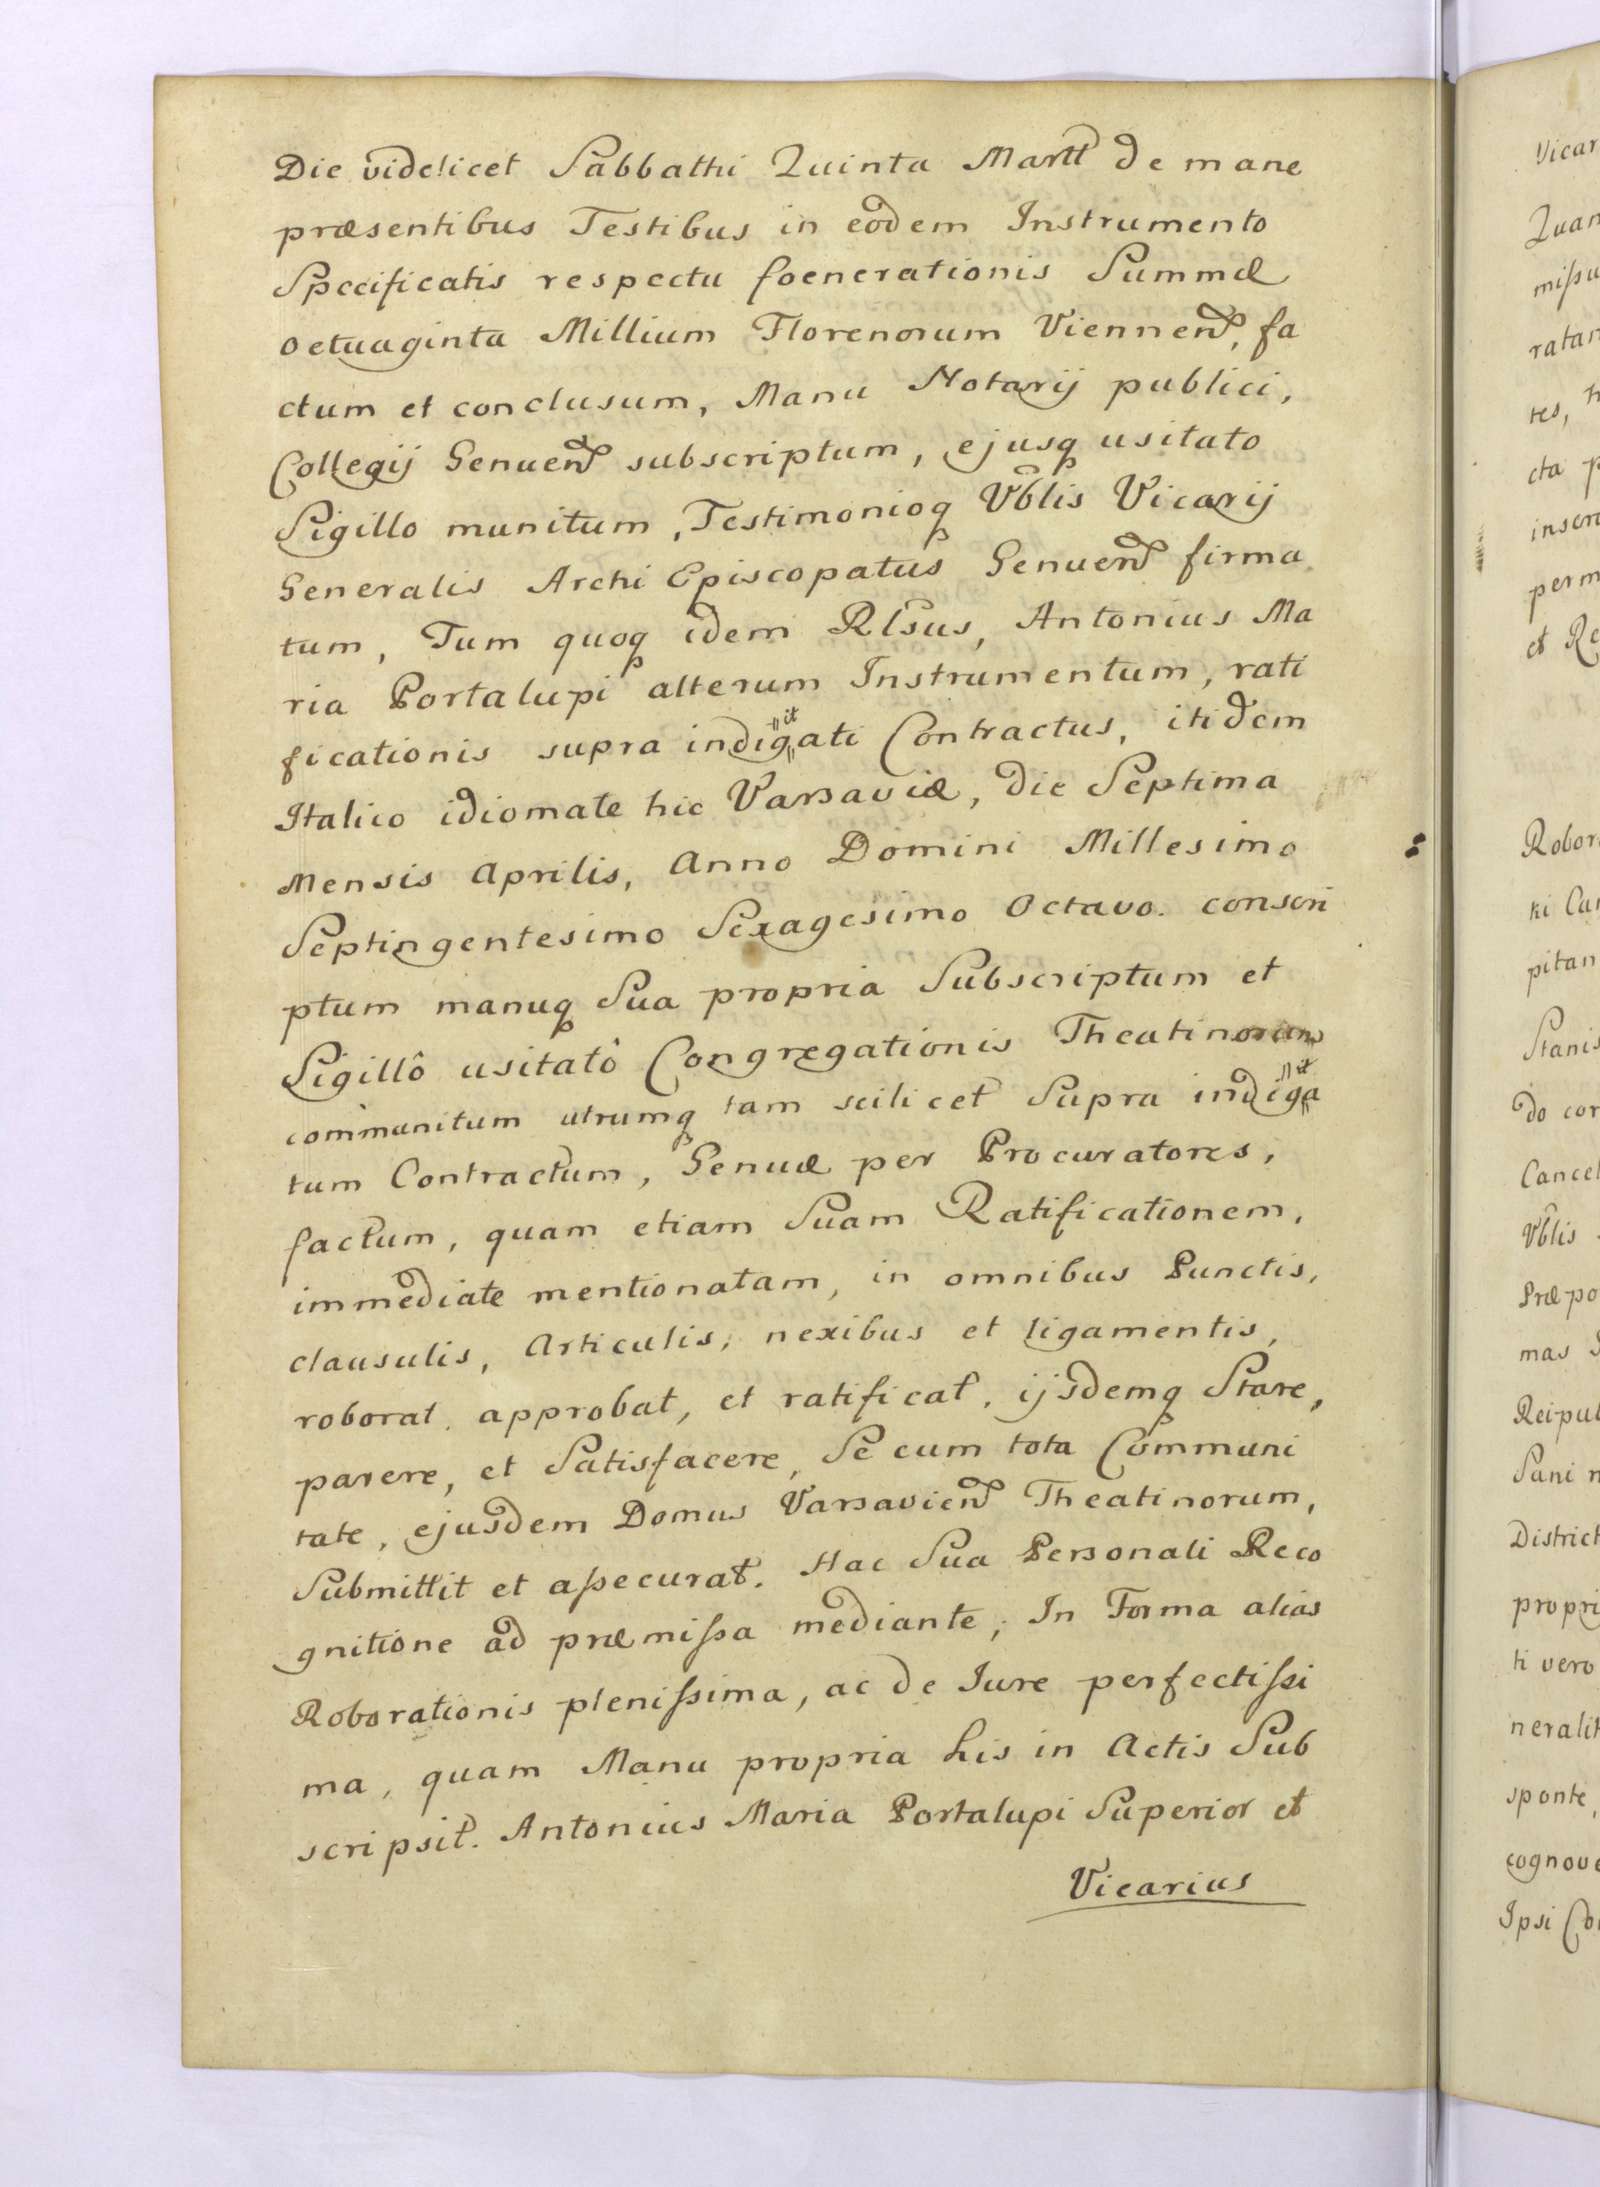 Die videlicet Sabbathi Quinta Martÿ de mane
præsentibus Testibus in eodem Instrumento
Specificatis respectu foenerationis Summæ
octuaginta Millium Florenorum Viennen̄, fa
ctum et conclusum, Manu Notarij publici,
Collegij Genuen̄ subscriptum, ejusq usitato
Sigillo munitum, Testimonioq Vblis Vicarij
Generalis Archi Episcopatus Genuen̄ firma
tum, Tum quoq idem Rlsus, Antonius Ma
ria Portalupi alterum Instrumentum, rati
ficationis supra indigitati Contractus, itidem
Italico idiomate hic Varsaviæ, die Septima
Mensis Aprilis, Anno Domini Millesimo
Septingentesimo Sexagesimo Octavo. conscri
ptum manuq Sua propria Subscriptum et
Sigillô usitatô Congregationis Theatinorum
communitum utrumq tam scilicet Supra indigita
tum Contractum, Genuæ per Procuratores,
factum, quam etiam Suam Ratificationem,
immediate mentionatam, in omnibus Punctis,
clausulis, Articulis, nexibus et ligamentis,
roborat, approbat, et ratificat, ijsdemq Stare,
parere, et Satisfacere, Se cum tota Communi
tate, ejusdem Domus Varsavien̄ Theatinorum,
Submittit et aßecurat. Hac Sua Personali Reco
gnitione ad præmißa mediante, In Forma alias
Roborationis pleniſsima, ac de Iure perfectiſsi
ma, quam Manu propria his in Actis Sub
scripsit. Antonius Maria Portalupi Superior et
Vicarius
Vicar
Quam
mißu
ratan
tes,
cta p
inscri
perm
et Re
Robor
ki Ca
pitan
Stanis
do cor
Cancel
Vblis
Præpo
mas
Reipul
Suni
District
propri
ti vero
neralit
sponte,
cognov
Ipsi Co